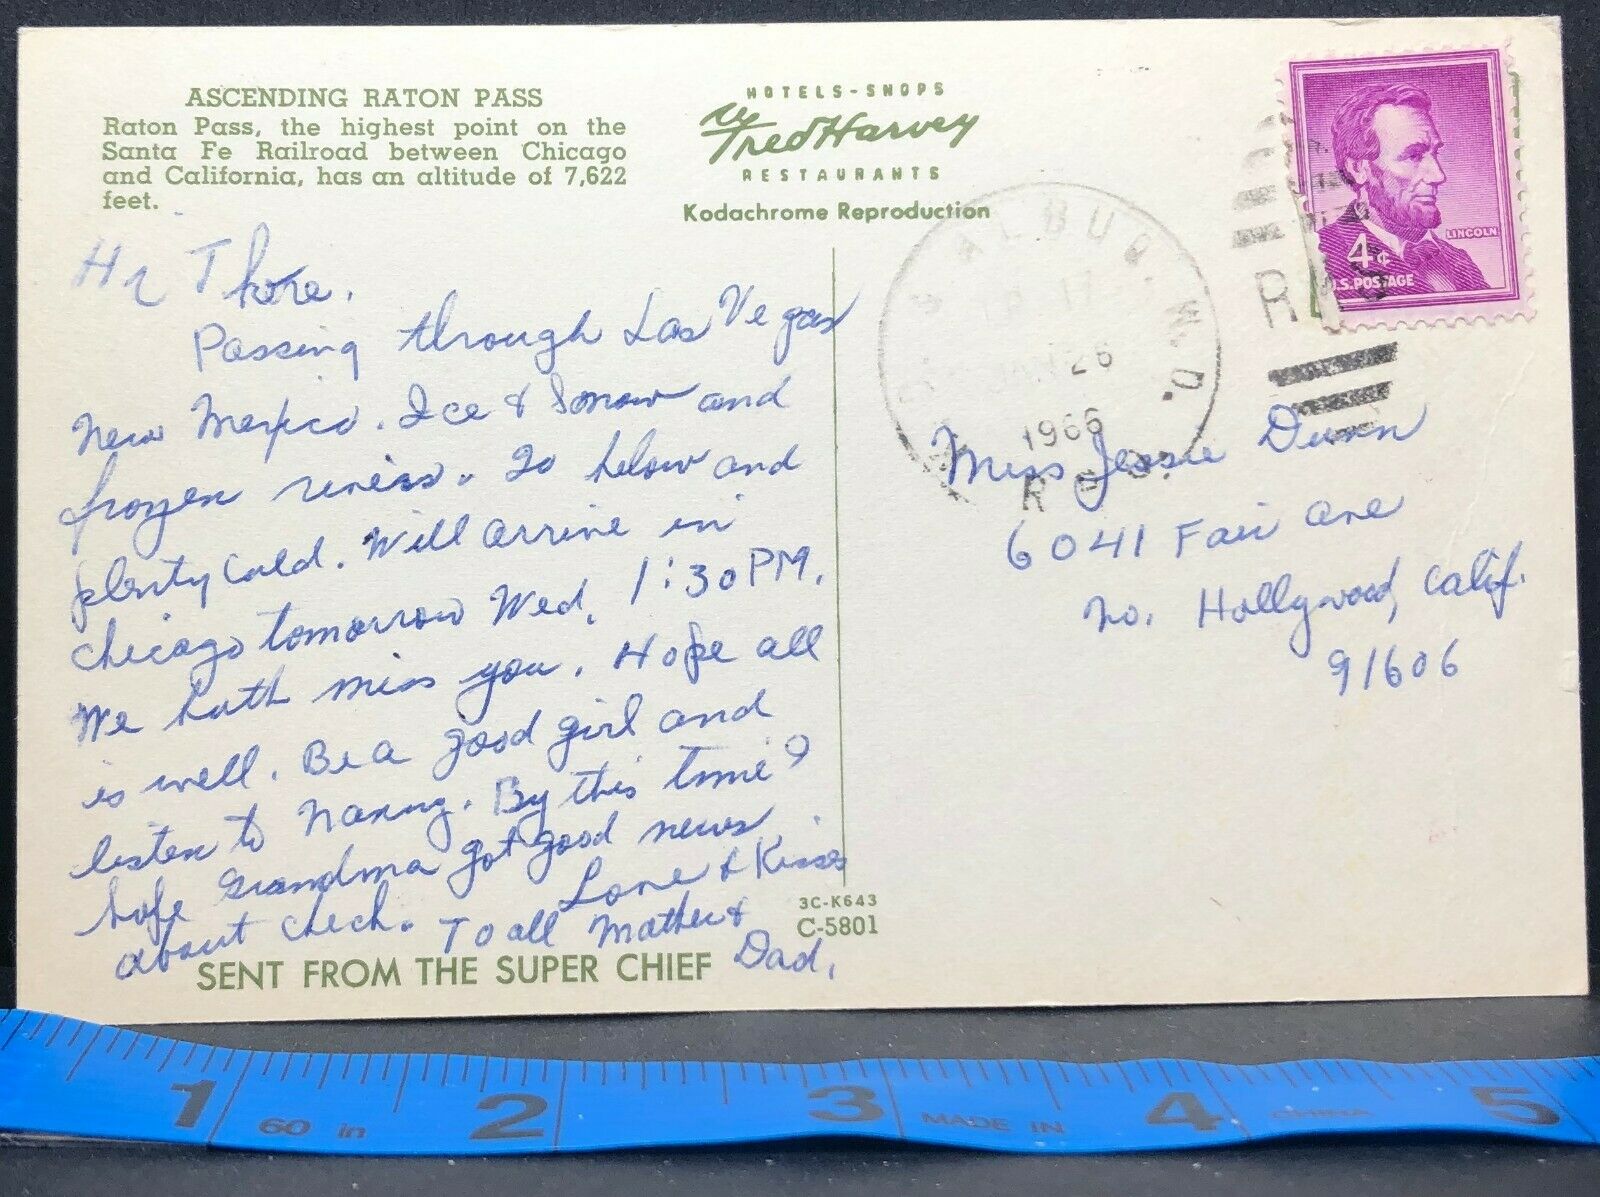 ASCENDING RATON PASS
Raton Pass, the highest point on the
Santa Fe Railroad between Chicago
and California, has an altitude of 7,622
feet.
HOTELS-SHOPS
Fred Harvey
RESTAURANTS
Kodachrome Reproduction
Hi Thore.
Passing through Las Vegas
New Mexico. Ice & Snow and
frozen rivers. 20 below and
plenty cold. Will arrive in
Chicago tomorrow Wed. 1:30 PM.
We both miss you. Hope all
is well. Be a good girl and
listen to Nanny. By this time
hope Grandma got good news
about check. Love & Kisses
To all Mother &
Dad.
3C-K643
C-5801
SENT FROM THE SUPER CHIEF
ALBUQ.
26
1966
R.P.O.
RMS
4¢
LINCOLN
U.S. POSTAGE
Miss Jessie Dunn
6041 Fair Ave
No. Hollywood, Calif.
91606
1 60 in 2 3 MADE IN 4 CHINA 5